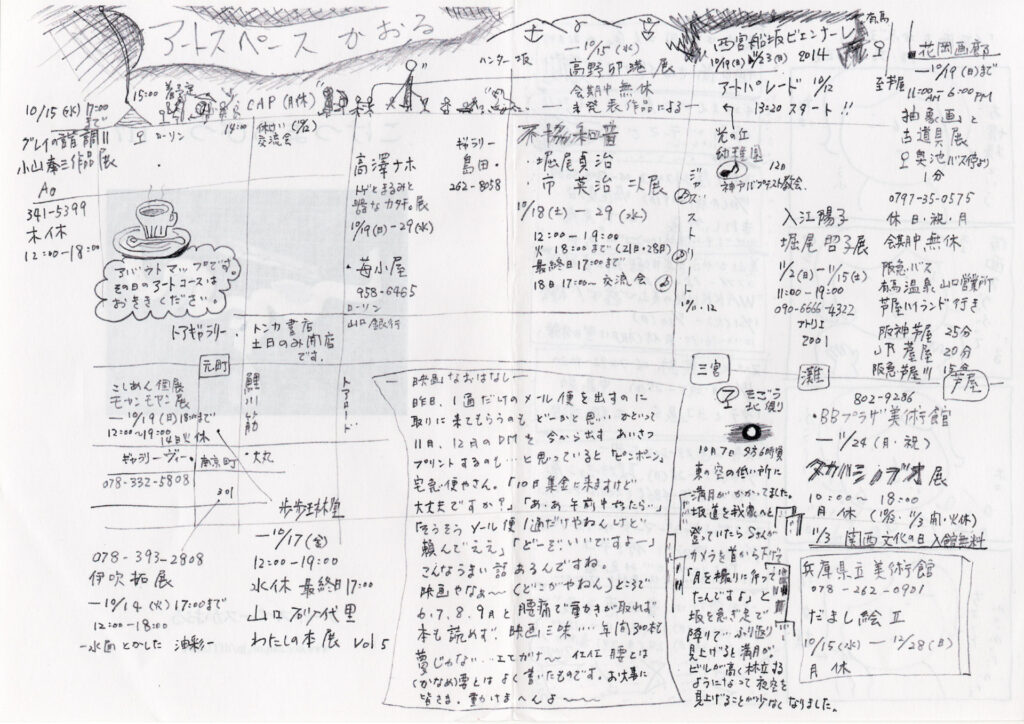 アートスペース かおる
ハンター坂
10/15(水) 17:00まで
15:00
グレイの諧調Ⅱ
小山奉三作品展
A○
341-5399
木休
12:00-18:00
ローソン
CAP(月休)
14:00
休けい
交流会
アバウトマップです。
その日のアートコースは
おききください。
高澤ナホ
トゲとまるみと
響なカタチ。展
10/19(日)-29(水)
・苺小屋
958-6465
ローソン
山口銀行
ギャラリー
島田・
262-8058
—10/15(水)
高野卯港展
会期中無休
—未発表作品による—
不協和音
・堀尾貞治
・市 英治 二人展
10/18(土)—29(水)
12:00-19:00
火 18:00まで(21日・28日)
最終日17:00まで
18日 17:00〜 交流会
ジャズストリート
10/11.12
西宮船坂ビエンナーレ
10/19(日)〜11/23(日) 2014
アートパレード 10/12
13:20 スタート!!
光の丘
幼稚園
神戸バプテスト教会
入江陽子
堀尾昭子展
11/2(日)-11/15(土)
11:00-19:00
090-6666-4322
アトリエ
2001
有馬
至芦屋
花岡画廊
—10/19(日)まで
11:00AM-6:00PM
抽象画と
古道具展
奥池バス停より
1分
0797-35-0575
休 日・祝・月
会期中無休
阪急バス
有馬温泉、山口営業所
芦屋ハイランド行き
阪神芦屋 25分
JR芦屋 20分
阪急芦屋川 15分
トアギャラリー・
トンカ書店
土日のみ開店
です。
元町
三宮
灘
芦屋
こしあん個展
モヤンモヤン展
—10/19(日)18:00まで
12:00〜19:00
14日火休
鯉川筋
トアロード
ギャラリーヴィー・
南京町
・大丸
078-332-5808
301
078-393-2808
伊吹拓展
—10/14(火)17:00まで
12:00-18:00
-水面とかした 油彩-
歩歩琳堂
—10/17(金)
12:00-19:00
水休 最終日17:00
山口砂代里
わたしの本展 Vol 5
映画なおはなし
昨日、1通だけのメール便を出すのに
取りに来てもらうのも どーかと思い かといって
11月、12月のDMを今から出す あいさつ
プリントするのも…と思っていると「ピンポーン。
宅急便やさん。「10日集金に来ますけど
大丈夫ですか?」「あ・あ午前中やったら…」
「そうそう メール便1通だけやねんけど
頼んでええ」「どーぞ、いいですよー」
こんなうまい話 あるんですね。
映画やなぁ〜(どこがやねん)ところで
6.7.8.9月と腰痛で動かきが取れず
本も読めず 映画三昧…年間300本も
夢じゃない…エてがナ〜 イエイエ 腰とは
(かなめ)要とは よく書いたものです。お大事に
皆さま、動けまへんよ〜〜〜
そごう
北側
10月7日 夕方6時頃
東の空の低い所に
満月がかかってました。
坂道を我家へと
登っていたらSさんが
カメラを首から下げて
「月を撮りに行って
たんですよ」と
坂を急ぎ足で
降りて… ふり返り
見上げると満月が。
ビルが高く林立する
ようになって夜空を
見上げることが少なくなりました。
802-9286
・BBプラザ美術館
—11/24(月・祝)
タカハシノブオ展
10:00〜18:00
月休(10/13、11/3 開・火休)
11/3 関西文化の日 入館無料
兵庫県立美術館
078-262-0901
だまし絵Ⅱ
10/15(水)—12/28(日)
月休